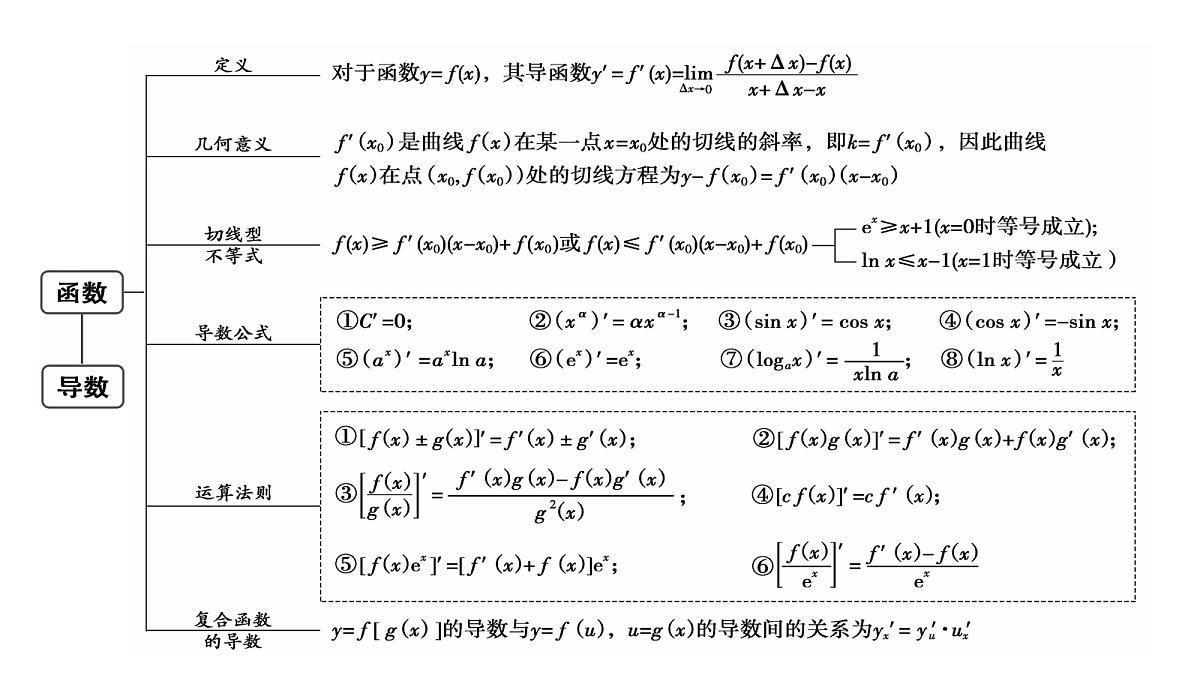 函数
导数
定义
对于函数y=f(x)，其导函数y′=f′(x)=lim Δx→0 f(x+Δx)−f(x) / x+Δx−x
几何意义
f′(x₀)是曲线f(x)在某一点x=x₀处的切线的斜率，即k=f′(x₀)，因此曲线
f(x)在点(x₀,f(x₀))处的切线方程为y−f(x₀)=f′(x₀)(x−x₀)
切线型
不等式
f(x)≥f′(x₀)(x−x₀)+f(x₀)或f(x)≤f′(x₀)(x−x₀)+f(x₀)
eˣ≥x+1(x=0时等号成立);
ln x≤x−1(x=1时等号成立)
导数公式
①C′=0; ②(x^α)′=αx^(α−1); ③(sin x)′=cos x; ④(cos x)′=−sin x;
⑤(aˣ)′=aˣln a; ⑥(eˣ)′=eˣ; ⑦(logₐx)′=1/(xln a); ⑧(ln x)′=1/x
运算法则
①[f(x)±g(x)]′=f′(x)±g′(x); ②[f(x)g(x)]′=f′(x)g(x)+f(x)g′(x);
③[f(x)/g(x)]′=f′(x)g(x)−f(x)g′(x) / g²(x); ④[cf(x)]′=cf′(x);
⑤[f(x)eˣ]′=[f′(x)+f(x)]eˣ; ⑥[f(x)/eˣ]′=f′(x)−f(x) / eˣ
复合函数
的导数
y=f[g(x)]的导数与y=f(u)，u=g(x)的导数间的关系为yₓ′=yᵤ′·uₓ′